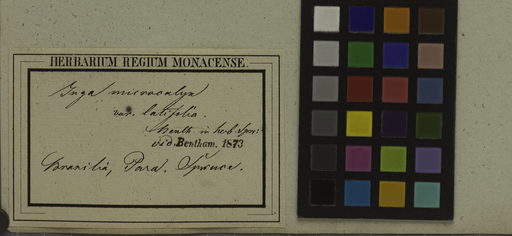 HERBARIUM REGIUM MONACENSE.
Inga microcalyx
var. latifolia.
Benth. in herb. Spruc.
vid. Bentham. 1873
Brasilia, Para. Spruce.